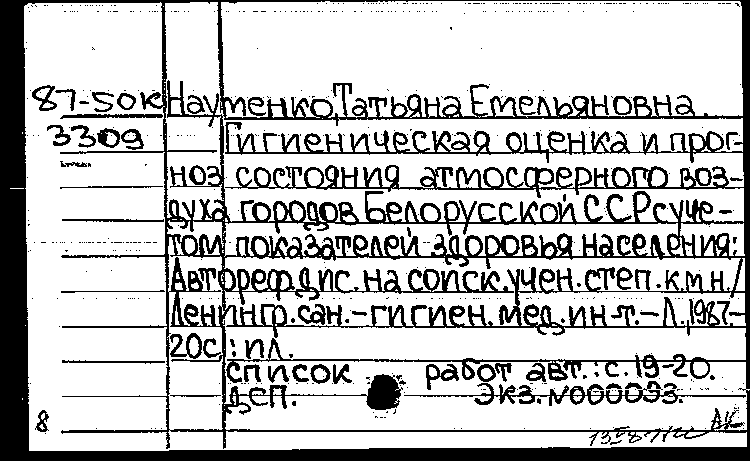 87-50к Науменко, Татьяна Емельяновна.
3309 Гигиеническая оценка и прог-
ноз состояния атмосферного воз-
духа городов Белорусской ССР с уче-
том показателей здоровья населения:
Автореф. дис. на соиск. учен. степ. к.м.н./
Ленингр. сан.-гигиен. мед. ин-т.-Л., 1987.-
20с.: ил.
Список работ авт.: с. 19-20.
ДСП. Экз. №000093.
8 АК